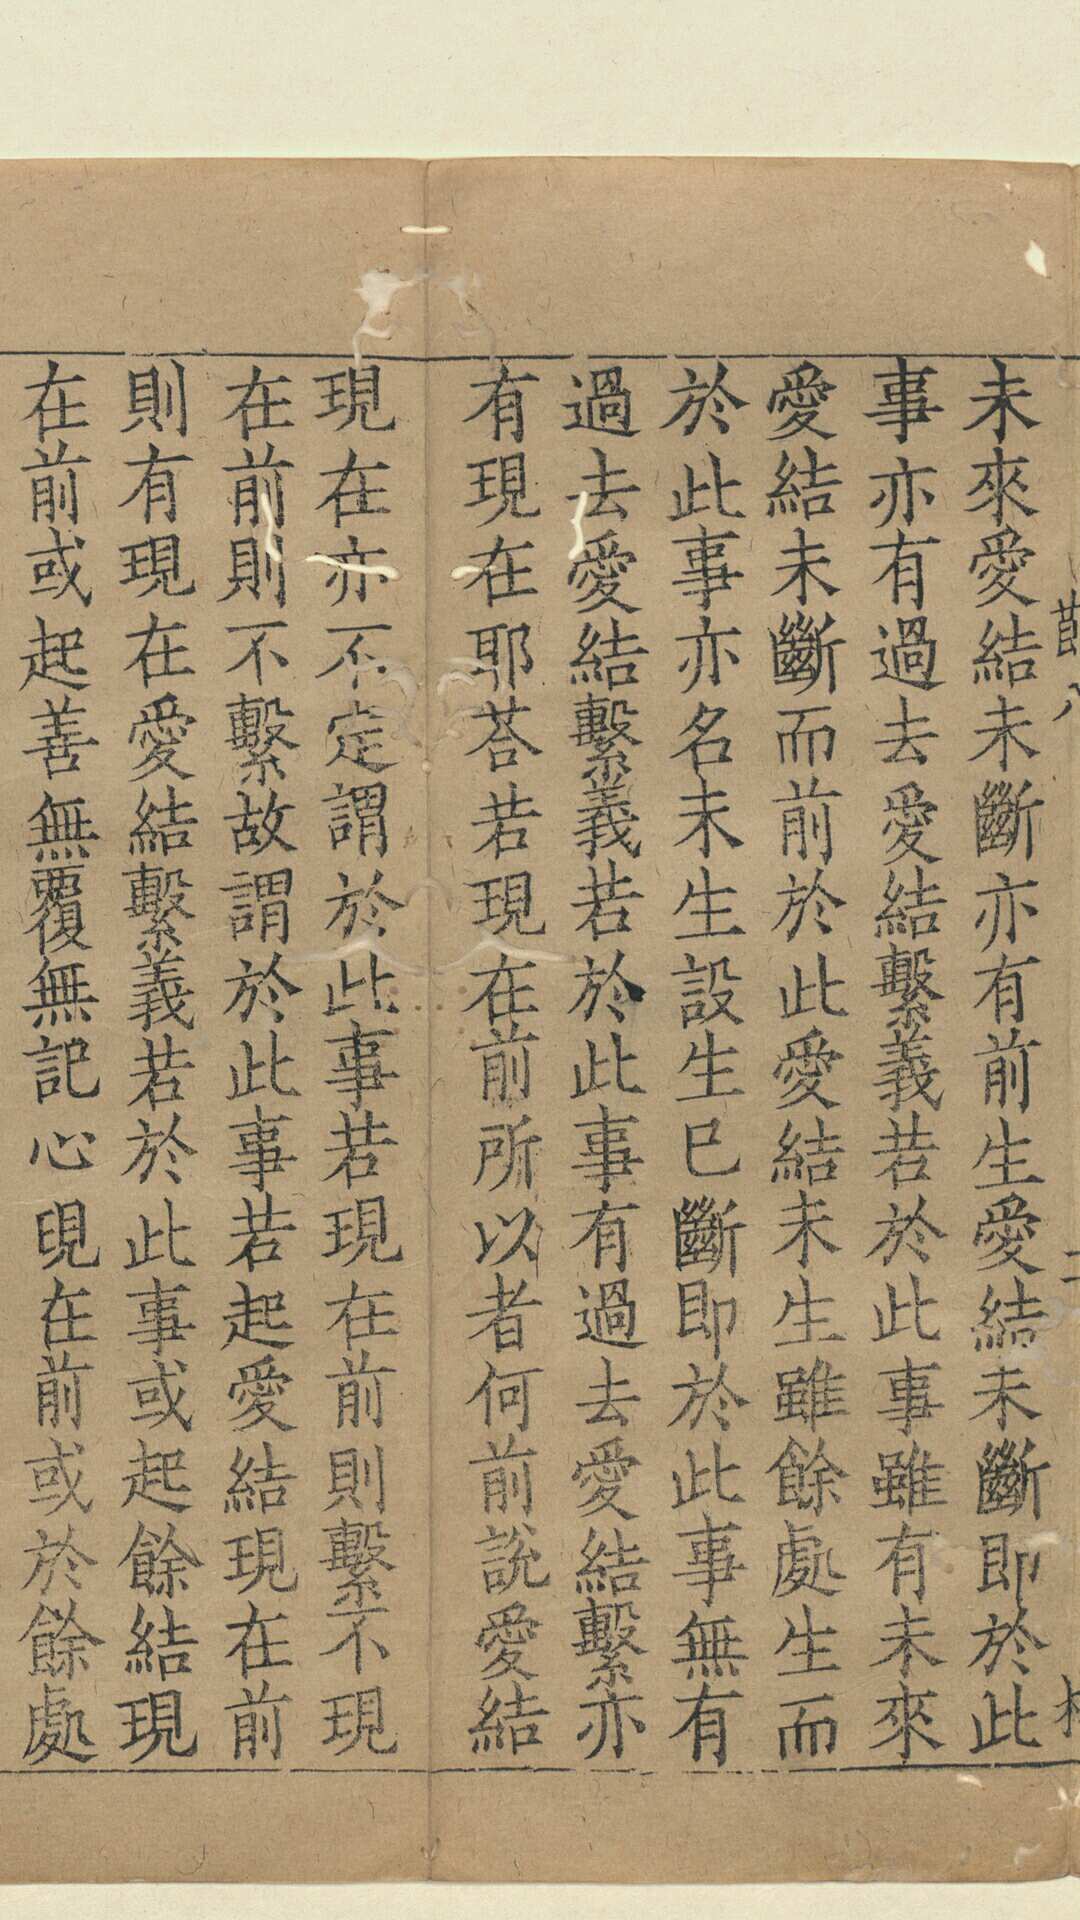 未來愛結未斷亦有前生愛結未斷即於此
事亦有過去愛結繫義若於此事雖有未來
愛結未斷而前於此愛結未生雖餘處生而
於此事亦名未生設生已斷即於此事無有
過去愛結繫義若於此事有過去愛結繫亦
有現在耶荅若現在前所以者何前說愛結
現在亦不定謂於此事若現在前則繫不現
在前則不繫故謂於此事若起愛結現在前
則有現在愛結繫義若於此事或起餘結現
在前或起善無覆無記心現在前或於餘處